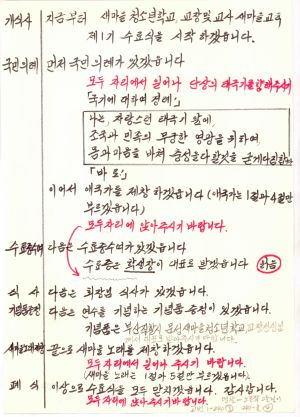 개식사 지금부터 새마을청소년학교 교장 및 교사 새마을교육
제1기 수료식을 시작하겠습니다.
국민의례 먼저 국민의례가 있겠습니다
모두 자리에서 일어나 단상의 태극기를 향해주시기
「국기에 대하여 경례」
나는, 자랑스런 태극기 앞에,
조국과 민족의 무궁한 영광을 위하여,
몸과 마음을 바쳐 충성을 다할것을 굳게 다짐합니다
「바로」
이어서 애국가를 제창하겠습니다 (애국가는 1절과 4절만
부르겠습니다)
모두 자리에 앉아주시기 바랍니다.
수료증수여 다음은 수료증수여가 있겠습니다
수료증은 학생장이 대표로 받겠습니다
식사 다음은 회장님 식사가 있겠습니다.
기념품증정 다음은 연수를 기념하는 기념품 증정이 있겠습니다
기념품은 부산직할시 새마을청소년학교
대표로 받아주시기 바랍니다.
새마을노래제창 끝으로 새마을노래를 제창하겠습니다.
모두 자리에서 일어나 주시기 바랍니다.
(새마을노래는 1절과 4절만 부르겠습니다.)
폐식 이상으로 수료식을 모두 마치겠습니다. 감사합니다.
모두 자리에 앉아주시기 바랍니다.